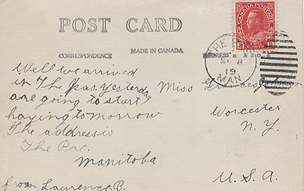 POST CARD
CORRESPONDENCE
MADE IN CANADA
THE
MAN
19
Well we arrived
at The Pas Yesterday
are going to start
haying tomorrow
The address is
The Pas.
Manitoba
from Laurence B.
Miss
Worcester
N.Y.
U.S.A